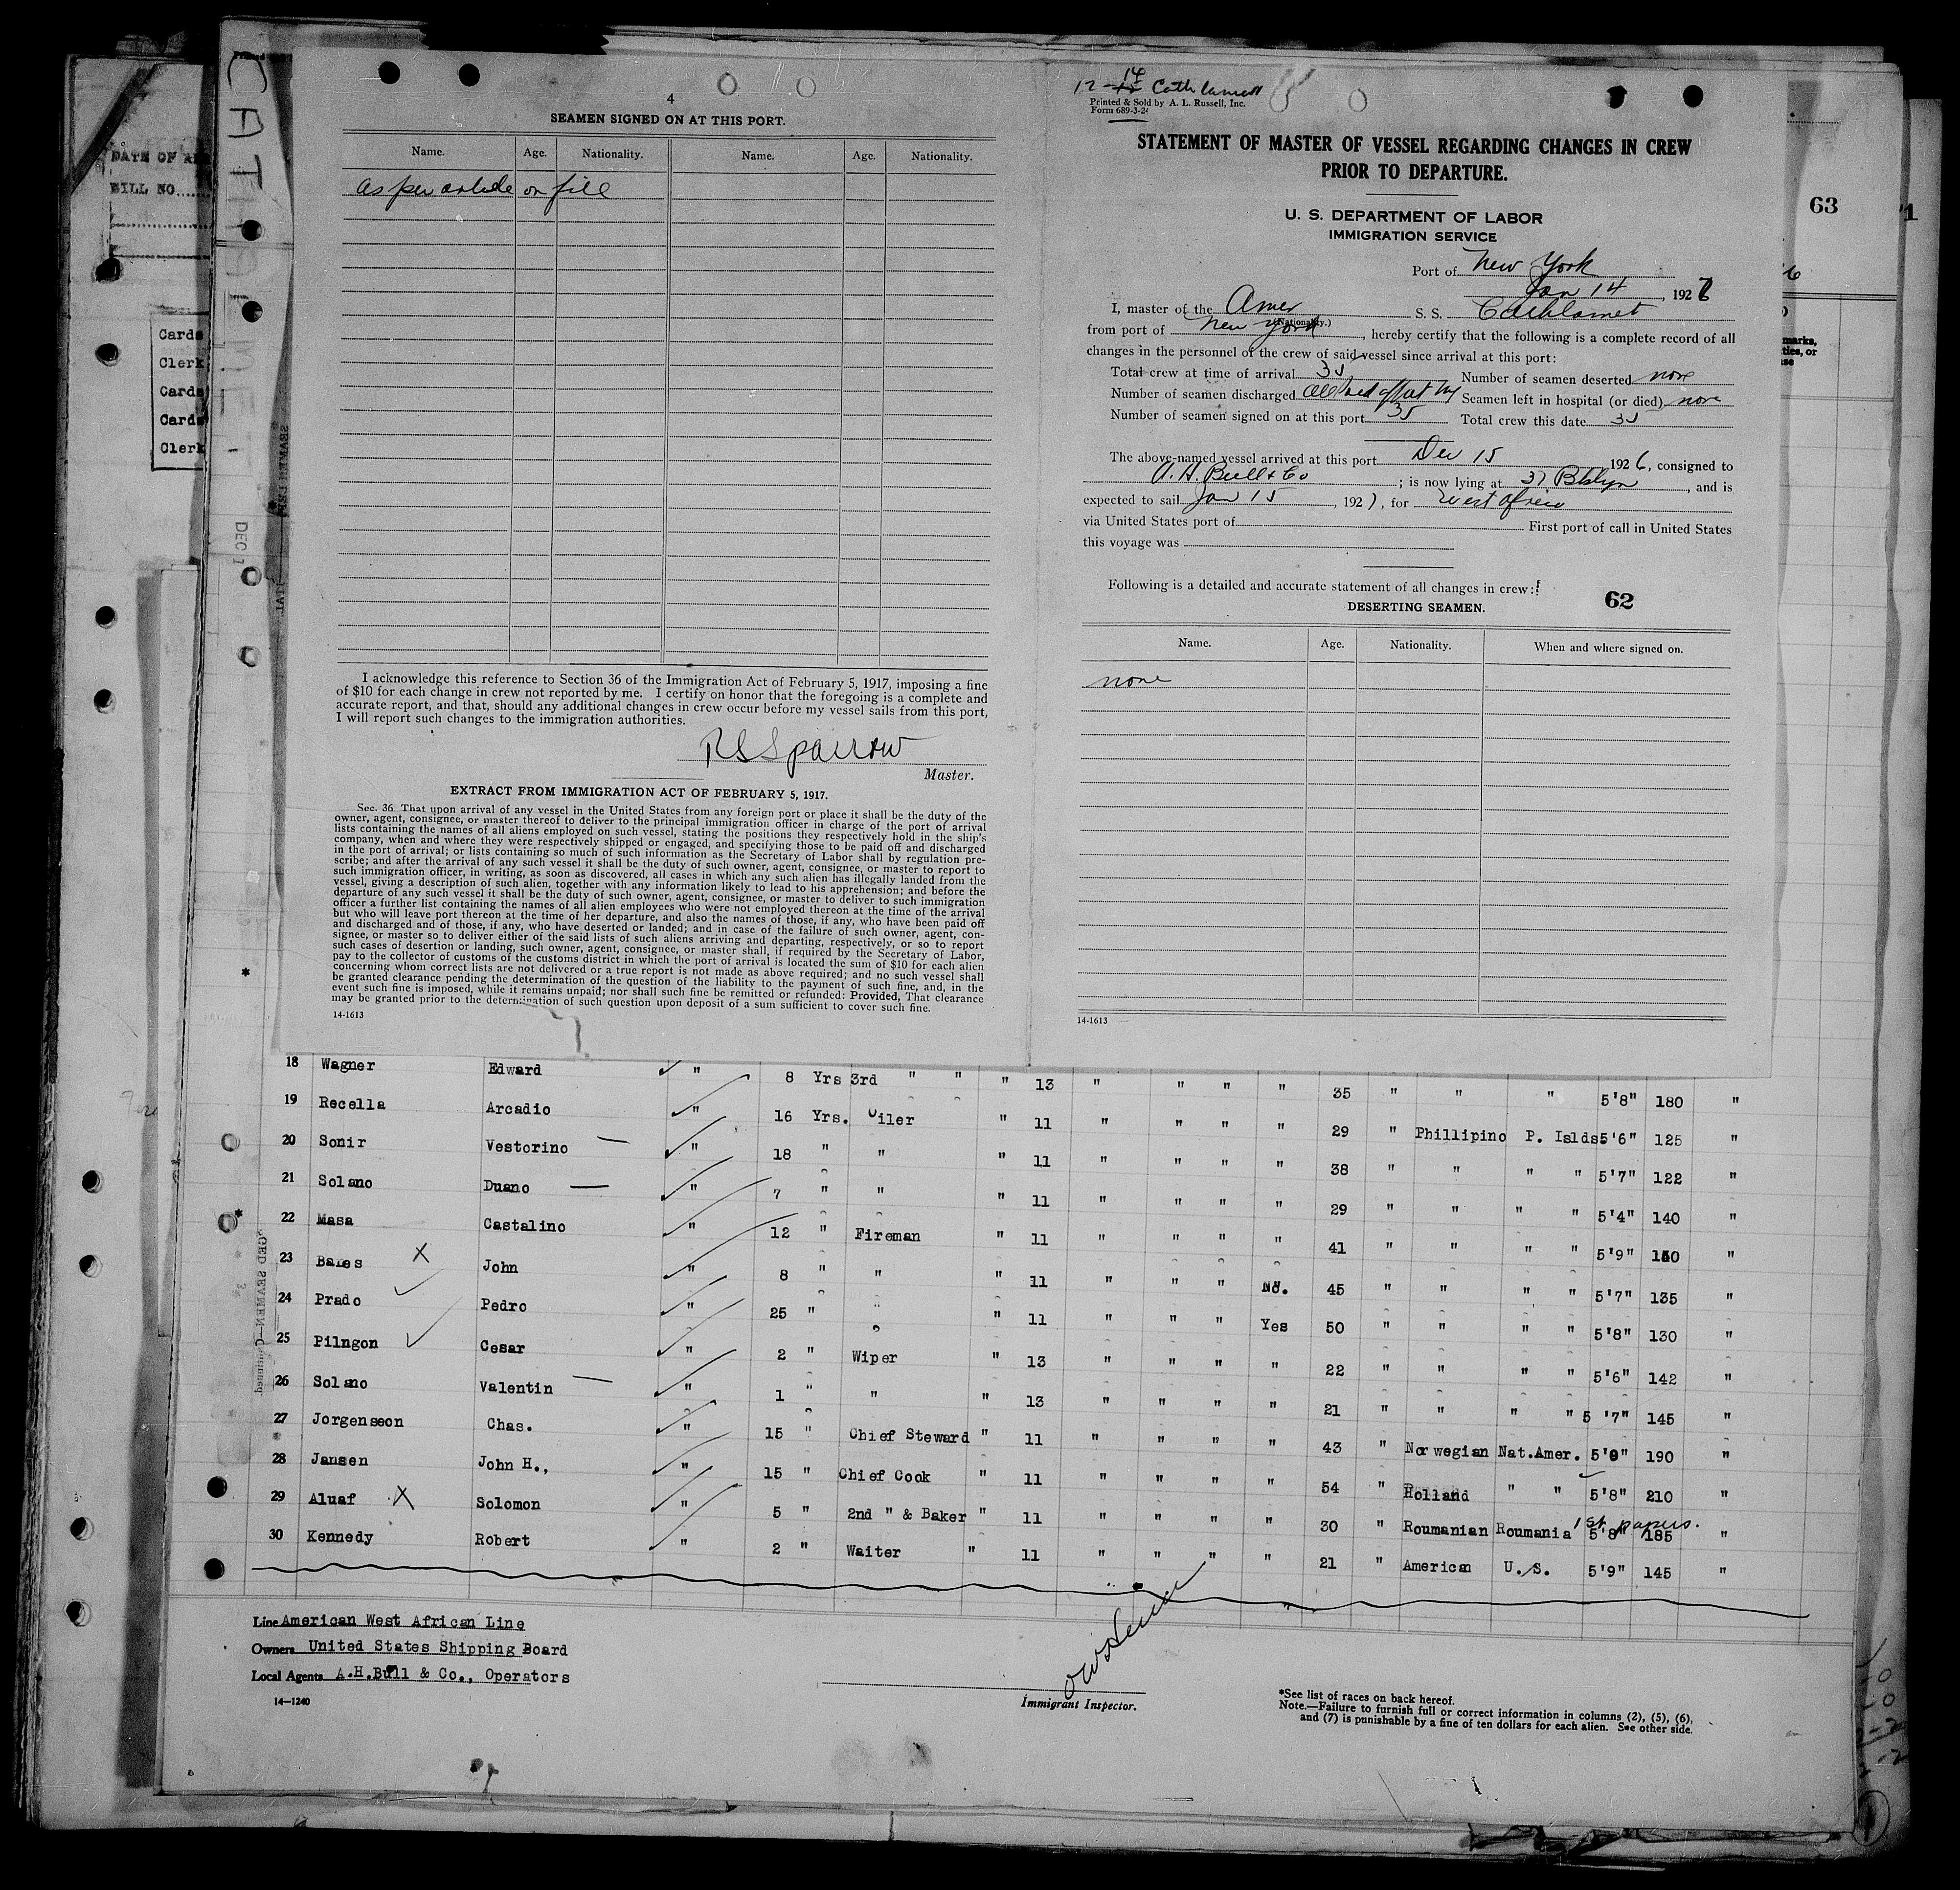 4
SEAMEN SIGNED ON AT THIS PORT.
Name. Age. Nationality. Name. Age. Nationality.
as per article on file
I acknowledge this reference to Section 36 of the Immigration Act of February 5, 1917, imposing a fine
of $10 for each change in crew not reported by me. I certify on honor that the foregoing is a complete and
accurate report, and that, should any additional changes in crew occur before my vessel sails from this port,
I will report such changes to the immigration authorities.
R S Sparrow
Master.
EXTRACT FROM IMMIGRATION ACT OF FEBRUARY 5, 1917.
Sec. 36. That upon arrival of any vessel in the United States from any foreign port or place it shall be the duty of the
owner, agent, consignee, or master thereof to deliver to the principal immigration officer in charge of the port of arrival
lists containing the names of all aliens employed on such vessel, stating the positions they respectively hold in the ship's
company, when and where they were respectively shipped or engaged, and specifying those to be paid off and discharged
in the port of arrival; or lists containing so much of such information as the Secretary of Labor shall by regulation pre-
scribe; and after the arrival of any such vessel it shall be the duty of such owner, agent, consignee, or master to report to
such immigration officer, in writing, as soon as discovered, all cases in which any such alien has illegally landed from the
vessel, giving a description of such alien, together with any information likely to lead to his apprehension; and before the
departure of any such vessel it shall be the duty of such owner, agent, consignee, or master to deliver to such immigration
officer a further list containing the names of all alien employees who were not employed thereon at the time of the arrival
but who will leave port thereon at the time of her departure, and also the names of those, if any, who have been paid off
and discharged and of those, if any, who have deserted or landed; and in case of the failure of such owner, agent, con-
signee, or master so to deliver either of the said lists of such aliens arriving and departing, respectively, or so to report
such cases of desertion or landing, such owner, agent, consignee, or master shall, if required by the Secretary of Labor,
pay to the collector of customs of the customs district in which the port of arrival is located the sum of $10 for each alien
concerning whom correct lists are not delivered or a true report is not made as above required; and no such vessel shall
be granted clearance pending the determination of the question of the liability to the payment of such fine, and, in the
event such fine is imposed, while it remains unpaid; nor shall such fine be remitted or refunded: Provided, That clearance
may be granted prior to the determination of such question upon deposit of a sum sufficient to cover such fine.
14-1613
12-14 Cathlamet
Printed & Sold by A. L. Russell, Inc.
Form 689-3-24
STATEMENT OF MASTER OF VESSEL REGARDING CHANGES IN CREW
PRIOR TO DEPARTURE.
U. S. DEPARTMENT OF LABOR
IMMIGRATION SERVICE
Port of New York
Jan 14, 1927
I, master of the Amer S. S. Cathlamet
(Nationality.)
from port of New York, hereby certify that the following is a complete record of all
changes in the personnel of the crew of said vessel since arrival at this port:
Total crew at time of arrival 35 Number of seamen deserted none
Number of seamen discharged All paid off at NY Seamen left in hospital (or died) none
Number of seamen signed on at this port 35 Total crew this date 35
The above-named vessel arrived at this port Dec 15 1926, consigned to
A. H. Bull & Co; is now lying at 37 Bklyn, and is
expected to sail Jan 15, 1927, for West Africa
via United States port of First port of call in United States
this voyage was
Following is a detailed and accurate statement of all changes in crew:
62
DESERTING SEAMEN.
Name. Age. Nationality. When and where signed on.
none
14-1613
63
DATE OF
BILL NO
Cards
Clerk
Cards
Cards
Clerk
marks,
ties, or
DEC
18 Wagner Edward " 8 Yrs 3rd " " " 13 " " " " 35 " " " 5'8" 180 "
19 Recella Arcadio " 16 Yrs. Oiler " 11 " " " " 29 " Phillipino P. Islds 5'6" 125 "
20 Sonir Vestorino — " 18 " " " 11 " " " " 38 " " " " 5'7" 122 "
21 Solano Duano — " 7 " " " 11 " " " " 29 " " " " 5'4" 140 "
22 Masa Castalino " 12 " Fireman " 11 " " " " 41 " " " " 5'9" 150 "
23 Bales X John " 8 " " " 11 " " " No. 45 " " " " 5'7" 135 "
24 Prado Pedro " 25 " " " 11 " " " Yes 50 " " " " 5'8" 130 "
25 Pilngon Cesar " 2 " Wiper " 13 " " " " 22 " " " " 5'6" 142 "
26 Solano Valentin — " 1 " " " 13 " " " " 21 " " " " 5 '7" 145 "
27 Jorgenseon Chas. " 15 " Chief Steward " 11 " " " " 43 " Norwegian Nat.Amer. 5'9" 190 "
28 Jansen John H., " 15 " Chief Cook " 11 " " " " 54 " Holland " " 5'8" 210 "
29 Aluaf X Solomon " 5 " 2nd " & Baker " 11 " " " " 30 " Roumanian Roumania 1st papers. 5'8" 185 "
30 Kennedy Robert " 2 " Waiter " 11 " " " " 21 " American U.S. 5'9" 145 "
Line American West African Line
Owners United States Shipping Board
Local Agents A.H.Bull & Co., Operators
14—1240
Immigrant Inspector.
*See list of races on back hereof.
Note.—Failure to furnish full or correct information in columns (2), (5), (6),
and (7) is punishable by a fine of ten dollars for each alien. See other side.